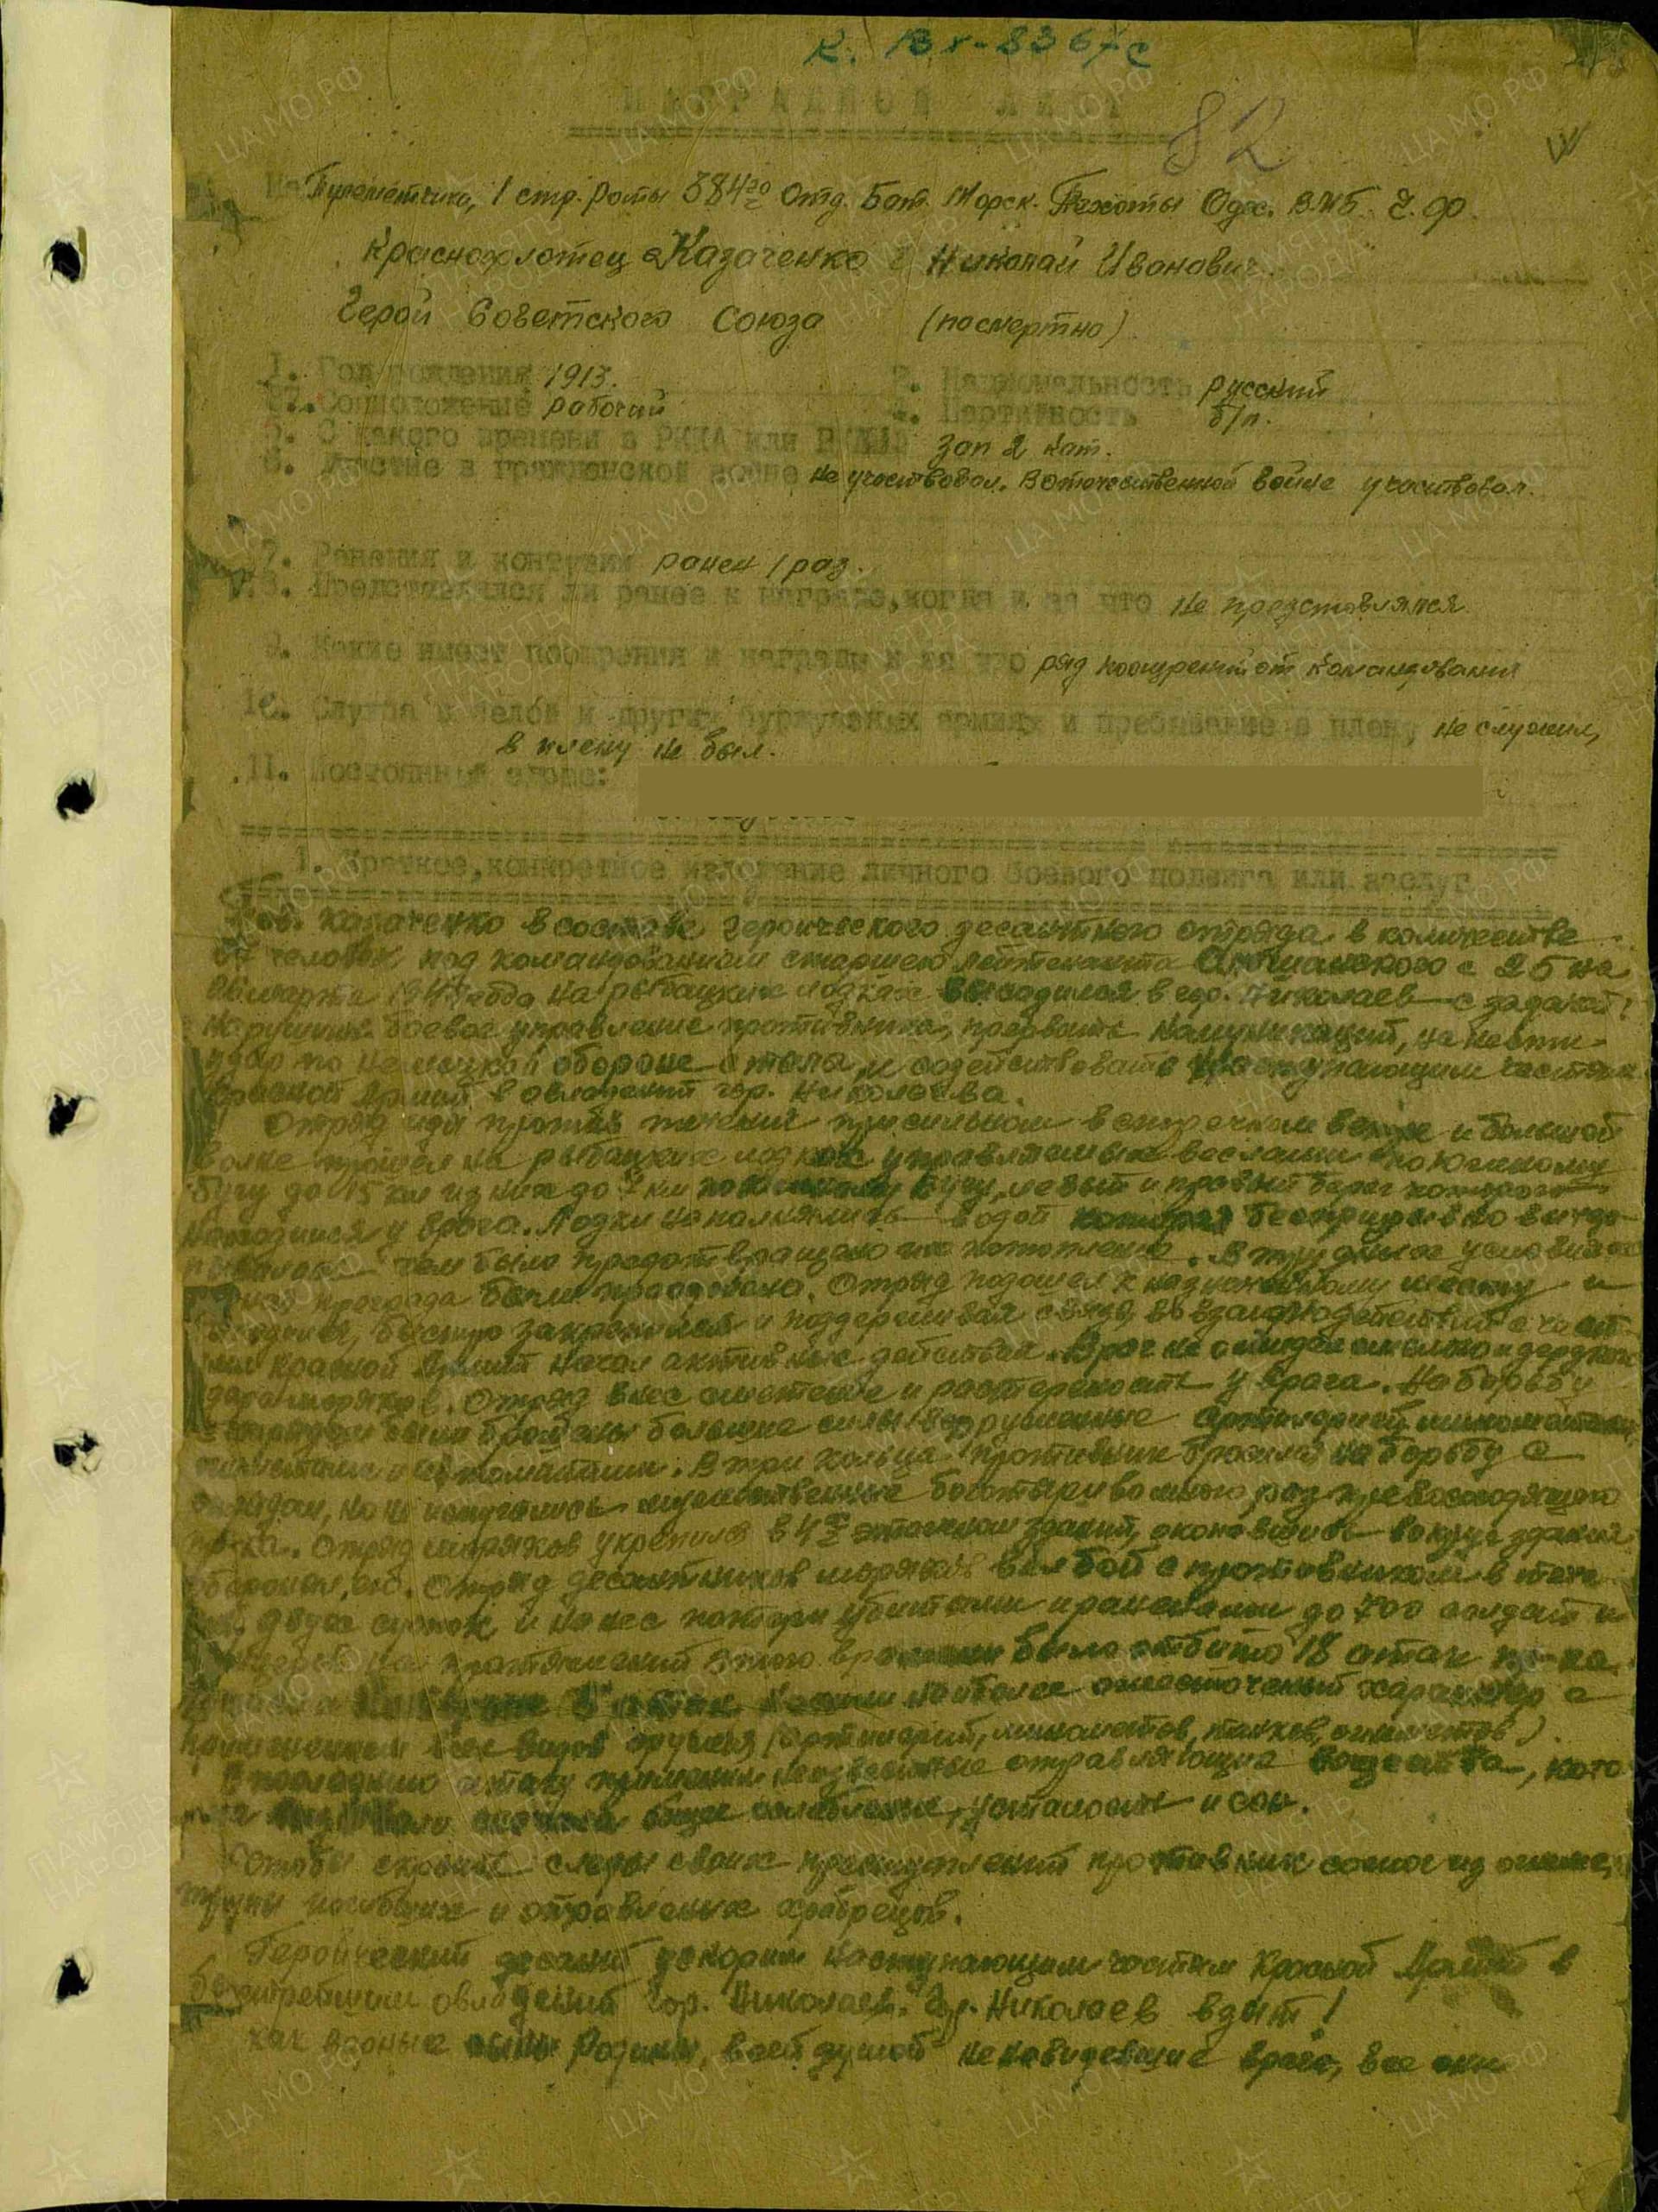 К. Вх-8367с
НАГРАДНОЙ ЛИСТ
82
На Пулеметчика, 1 стр. роты 384го Отд. Бат. Морск. Пехоты Одес. В.М.б. Ч.Ф.
Краснофлотец Казаченко Николай Иванович.
Герой Советского Союза (посмертно)
1. Год рождения 1913. 2. Национальность русский
3. Соцположение рабочий 4. Партийность б/п.
5. С какого времени в РККА или РКВМФ зап 2 кат.
6. Участие в гражданской войне не участвовал. В отечественной войне участвовал.
7. Ранения и контузии ранен 1 раз.
8. Представлялся ли ранее к награде, когда и за что не представлялся.
9. Какие имеет поощрения и награды и за что ряд поощрений от командования
10. Служба в белой и других буржуазных армиях и пребывание в плену не служил,
в плену не был.
11. Постоянный адрес:
1. Краткое, конкретное изложение личного боевого подвига или заслуг
Тов. Казаченко в составе героического десантного отряда в количестве
человек под командованием старшего лейтенанта Ольшанского с 25 на
26 марта 194 года на рыбацких лодках высадился в гор. Николаев с задачей:
нарушить боевое управление противника, прервать коммуникаций, нанести
удар по немецкой обороне с тыла и содействовать наступающим частям
Красной Армий в овладений гор. Николаева.
Отряд идя против течения при сильном встречном ветре и большой
волне прошел на рыбацких лодках управляемых веслами по Южному
Бугу до 15 км из них до 7 км по Южному Бугу, левый и правый берег которого
находился у врага. Лодки наполнялись водой которая беспрерывно вычер-
пывалась тем было предотвращено их потопление. В трудных условиях
преграда была преодолена. Отряд подошел к назначенному месту и
быстро закрепился и поддерживая связь во взаимодействий с частя-
ми Красной Армий начал активные действия. Враг не ожидал смелого и дерзкого
удара моряков. Отряд внес смятение и растерянность у врага. На борьбу
с отрядом были брошены большие силы вооруженные артиллерией, минометами,
и автоматами. В три кольца противник бросился на борьбу с
отрядом, но не испугались мужественные богатыри во много раз превосходящего
пр-ка. Отряд моряков укрепился в 4х этажном зданий, окопавшись вокруг здания
обороняя его. Отряд десантников моряков вел бой с противником в тече-
ний двух суток и нанес потери убитыми и ранеными до 700 солдат и
офицеров. На протяжений этого времени было отбито 18 атак пр-ка.
атак носили наиболее ожесточеный характер с
применением всех видов оружия (артиллерий, минометов, танков, огнеметов).
В последнюю атаку применил неизвестные отравляющие вещества, кото-
рые общее ослабление, усталость и сон.
Чтобы скрыть следы своих преступлений противник сжег из огнеме,
трупы погибших и отравленых храбрецов.
Героический десант ускорил наступающим частям Красной Армий в
быстрейшим овладений гор. Николаев. Гор. Николаев взят!
Как верные сыны Родины, всей душой ненавидевшие врага, все они